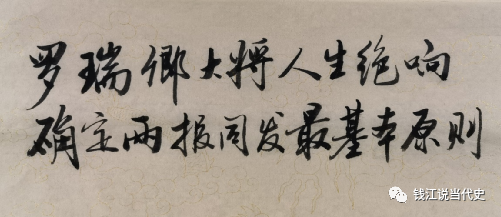 罗瑞卿大将人生绝响
确定两报同发最基本原则
钱江说当代史